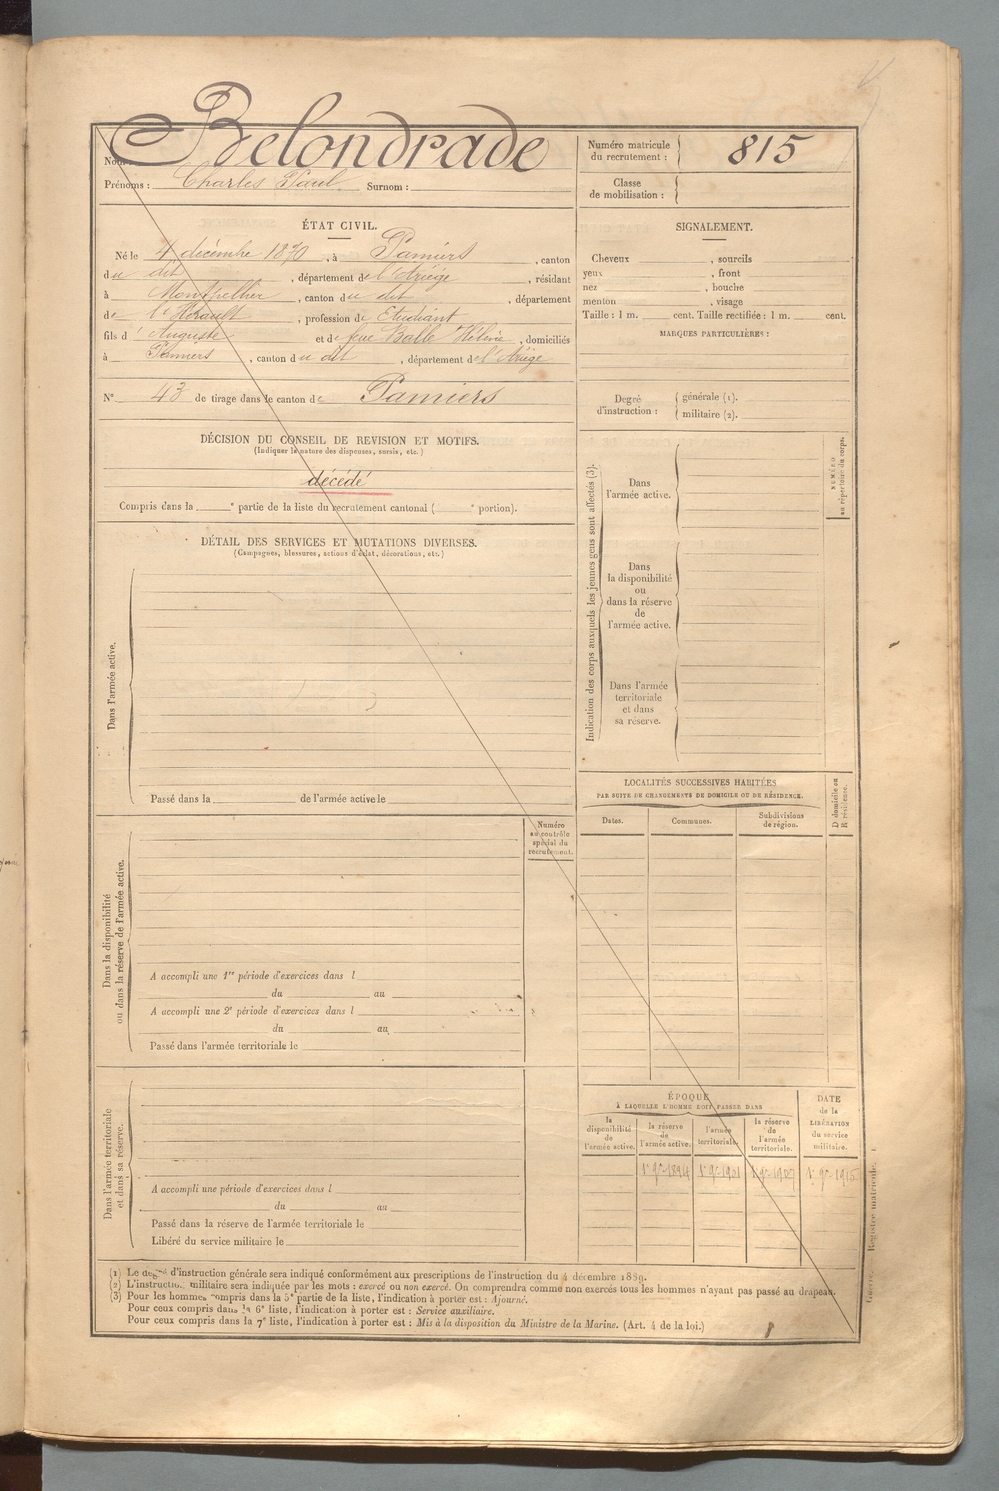 Belondrade
Nom
Prénoms : Charles Paul Surnom :
Numéro matricule du recrutement : 815
Classe de mobilisation :
ÉTAT CIVIL.
Né le 4 décembre 1870, à Pamiers, canton
du dit, département de l'Ariège, résidant
à Montpellier, canton du dit, département
de l'Hérault, profession de Etudiant
fils d'Auguste et de feue Balle Hélène, domiciliés
à Pamiers, canton du dit, département de l'Ariège
N° 43 de tirage dans le canton de Pamiers
SIGNALEMENT.
Cheveux , sourcils
yeux , front
nez , bouche
menton , visage
Taille : 1 m. cent. Taille rectifiée : 1 m. cent.
MARQUES PARTICULIÈRES :
Degré d'instruction : générale (1).
militaire (2).
DÉCISION DU CONSEIL DE REVISION ET MOTIFS.
(Indiquer la nature des dispenses, sursis, etc.)
décédé
Compris dans la e partie de la liste du recrutement cantonal ( e portion).
DÉTAIL DES SERVICES ET MUTATIONS DIVERSES.
(Campagnes, blessures, actions d'éclat, décorations, etc.)
Dans l'armée active.
Passé dans la de l'armée active le
Indication des corps auxquels les jeunes gens sont affectés (3).
NUMÉRO
au répertoire du corps.
Dans
l'armée active.
Dans
la disponibilité
ou
dans la réserve
de
l'armée active.
Dans l'armée
territoriale
et dans
sa réserve.
Numéro
au contrôle
spécial du
recrutement.
Dans la disponibilité
ou dans la réserve de l'armée active.
A accompli une 1re période d'exercices dans l
du au
A accompli une 2e période d'exercices dans l
du au
Passé dans l'armée territoriale le
LOCALITÉS SUCCESSIVES HABITÉES
PAR SUITE DE CHANGEMENTS DE DOMICILE OU DE RÉSIDENCE.
Dates. Communes. Subdivisions de région.
D domicile ou
R résidence.
Dans l'armée territoriale
et dans sa réserve.
A accompli une période d'exercices dans l
du au
Passé dans la réserve de l'armée territoriale le
Libéré du service militaire le
ÉPOQUE
À LAQUELLE L'HOMME DOIT PASSER DANS
la disponibilité de l'armée active.
la réserve de l'armée active.
l'armée territoriale.
la réserve de l'armée territoriale.
DATE de la LIBÉRATION du service militaire.
1er 9e 1894 1er 9e 1901 1er 9e 1907 1er 9e 1915
Registre matricule.
(1) Le degré d'instruction générale sera indiqué conformément aux prescriptions de l'instruction du 4 décembre 1889.
(2) L'instruction militaire sera indiquée par les mots : exercé ou non exercé. On comprendra comme non exercés tous les hommes n'ayant pas passé au drapeau.
(3) Pour les hommes compris dans la 5e partie de la liste, l'indication à porter est : Ajourné.
Pour ceux compris dans la 6e liste, l'indication à porter est : Service auxiliaire.
Pour ceux compris dans la 7e liste, l'indication à porter est : Mis à la disposition du Ministre de la Marine. (Art. 4 de la loi.)